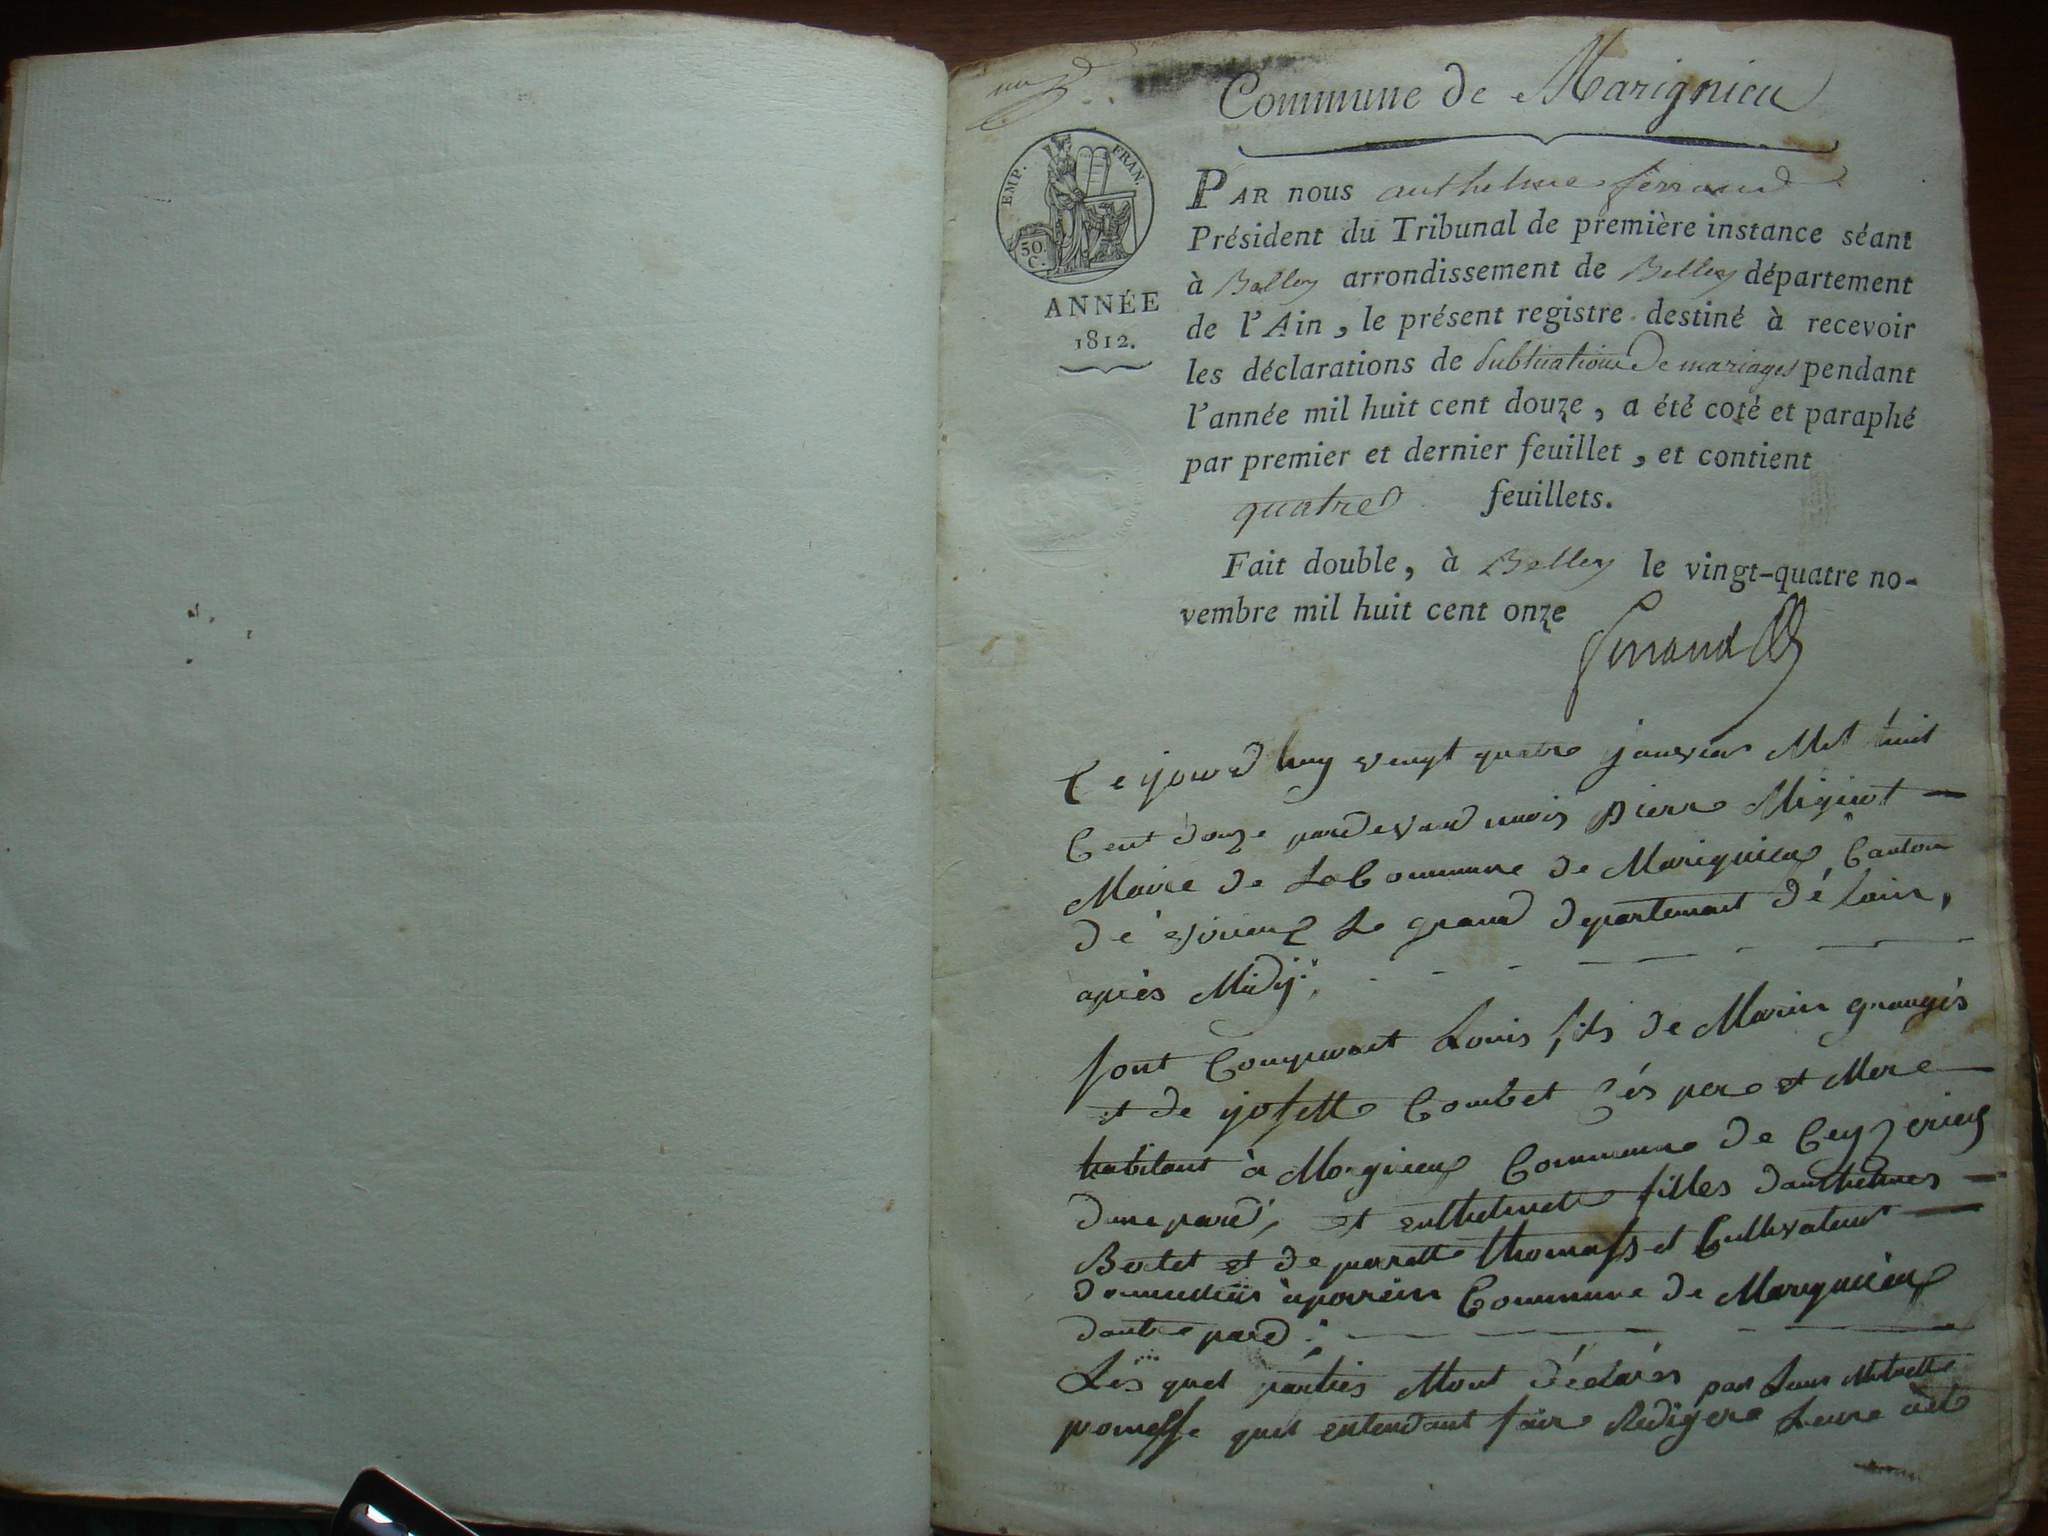 Commune de Marignieu
EMP. FRAN.
50 C.
ANNÉE
1812.
PAR nous anthelme ferrand
Président du Tribunal de première instance séant
à Belley arrondissement de Belley département
de l'Ain, le présent registre destiné à recevoir
les déclarations de publications de mariages pendant
l'année mil huit cent douze, a été coté et paraphé
par premier et dernier feuillet, et contient
quatre feuillets.
Fait double, à Belley le vingt-quatre no-
vembre mil huit cent onze
Ferrand
Cejourd huy vengt quatre janvier Mil huit
Cent douze pardevand nous pierre Migeot
Maire de La Commune de Marignieu Canton
dé virieux Le grand departement dé Lain,
après Midy.
sont Comparant Louis fils de Marin grangés
et de josette Combet sés pere et Mere
habitant à Mognieux Commune de Ceyzerieu
dune pard, et enthelmette filles danthelmes
Bertet et de perrette thomasset Cultivateur
à poirrin Commune de Marignieux
dautre pard.
Lés quel parties Mont déclarés par Leur Mutuelle
promesse quil entendant faire Redigere Leure acte